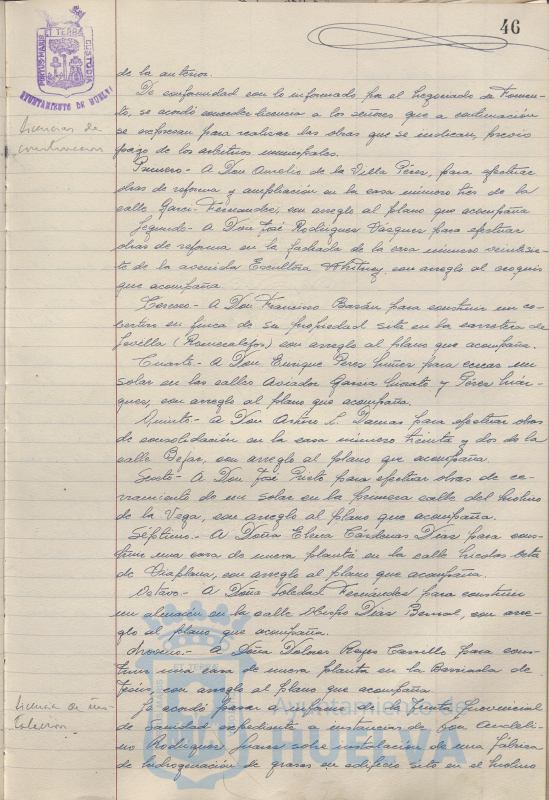 46
PORTUS MARIS ET TERRAE CUSTODIA
AYUNTAMIENTO DE HUELVA
de la anterior.
De conformidad con lo informado por el Negociado de Fomen-
to, se acordó conceder licencia a los señores que a continuación
se expresan para realizar las obras que se indican, previo
pago de los arbitrios municipales.
Licencias de
construccion
Primero.- A Don Aurelio de la Villa Pérez, para efectuar
obras de reforma y ampliación en la casa número tres de la
calle Garci-Fernandez, con arreglo al plano que acompaña
Segundo.- A Don José Rodriguez Vazquez para efectuar
obras de reforma en la fachada de la casa número veintisie-
te de la avenida Escultora Whitney con arreglo al croquis
que acompaña.
Tercero.- A Don Francisco Bazán para construir un co-
bertizo en finca de su propiedad sita en la carretera de
Sevilla ( ) con arreglo al plano que acompaña.
Cuarto.- A Don Enrique Perez Nuñez para cercar un
solar en las calles Aviador Garcia Morato y Pérez Már-
quez, con arreglo al plano que acompaña.
Quinto.- A Don Arturo L. Damas para efectuar obras
de consolidación en la casa número treinta y dos de la
calle Bejar, con arreglo al plano que acompaña.
Sexto.- A Don José Prieto para efectuar obras de ce-
rramiento de un solar en la primera calle del Molino
de la Vega, con arreglo al plano que acompaña.
Séptimo.- A Doña Elena Cárdenas Diaz para cons-
truir una casa de nueva planta en la calle Nicolas
de Viaplana, con arreglo al plano que acompaña.
Octavo.- A Doña Soledad Fernández para construir
un almacén en la calle Obispo Diaz Bernal, con arre-
glo al plano que acompaña.
Noveno.- A Doña Dolores Reyes Carrillo para cons-
truir una casa de nueva planta en la Barriada de
Jesús, con arreglo al plano que acompaña.
Licencia de ins-
talacion
Se acordó pasar a informe de la Junta Provincial
de Sanidad expediente a instancias de Don Aveli-
no Rodriguez sobre instalación de una fábrica
de hidrogenación de grasas en edificio sito en el Molino
Ayuntamiento de
HUELVA